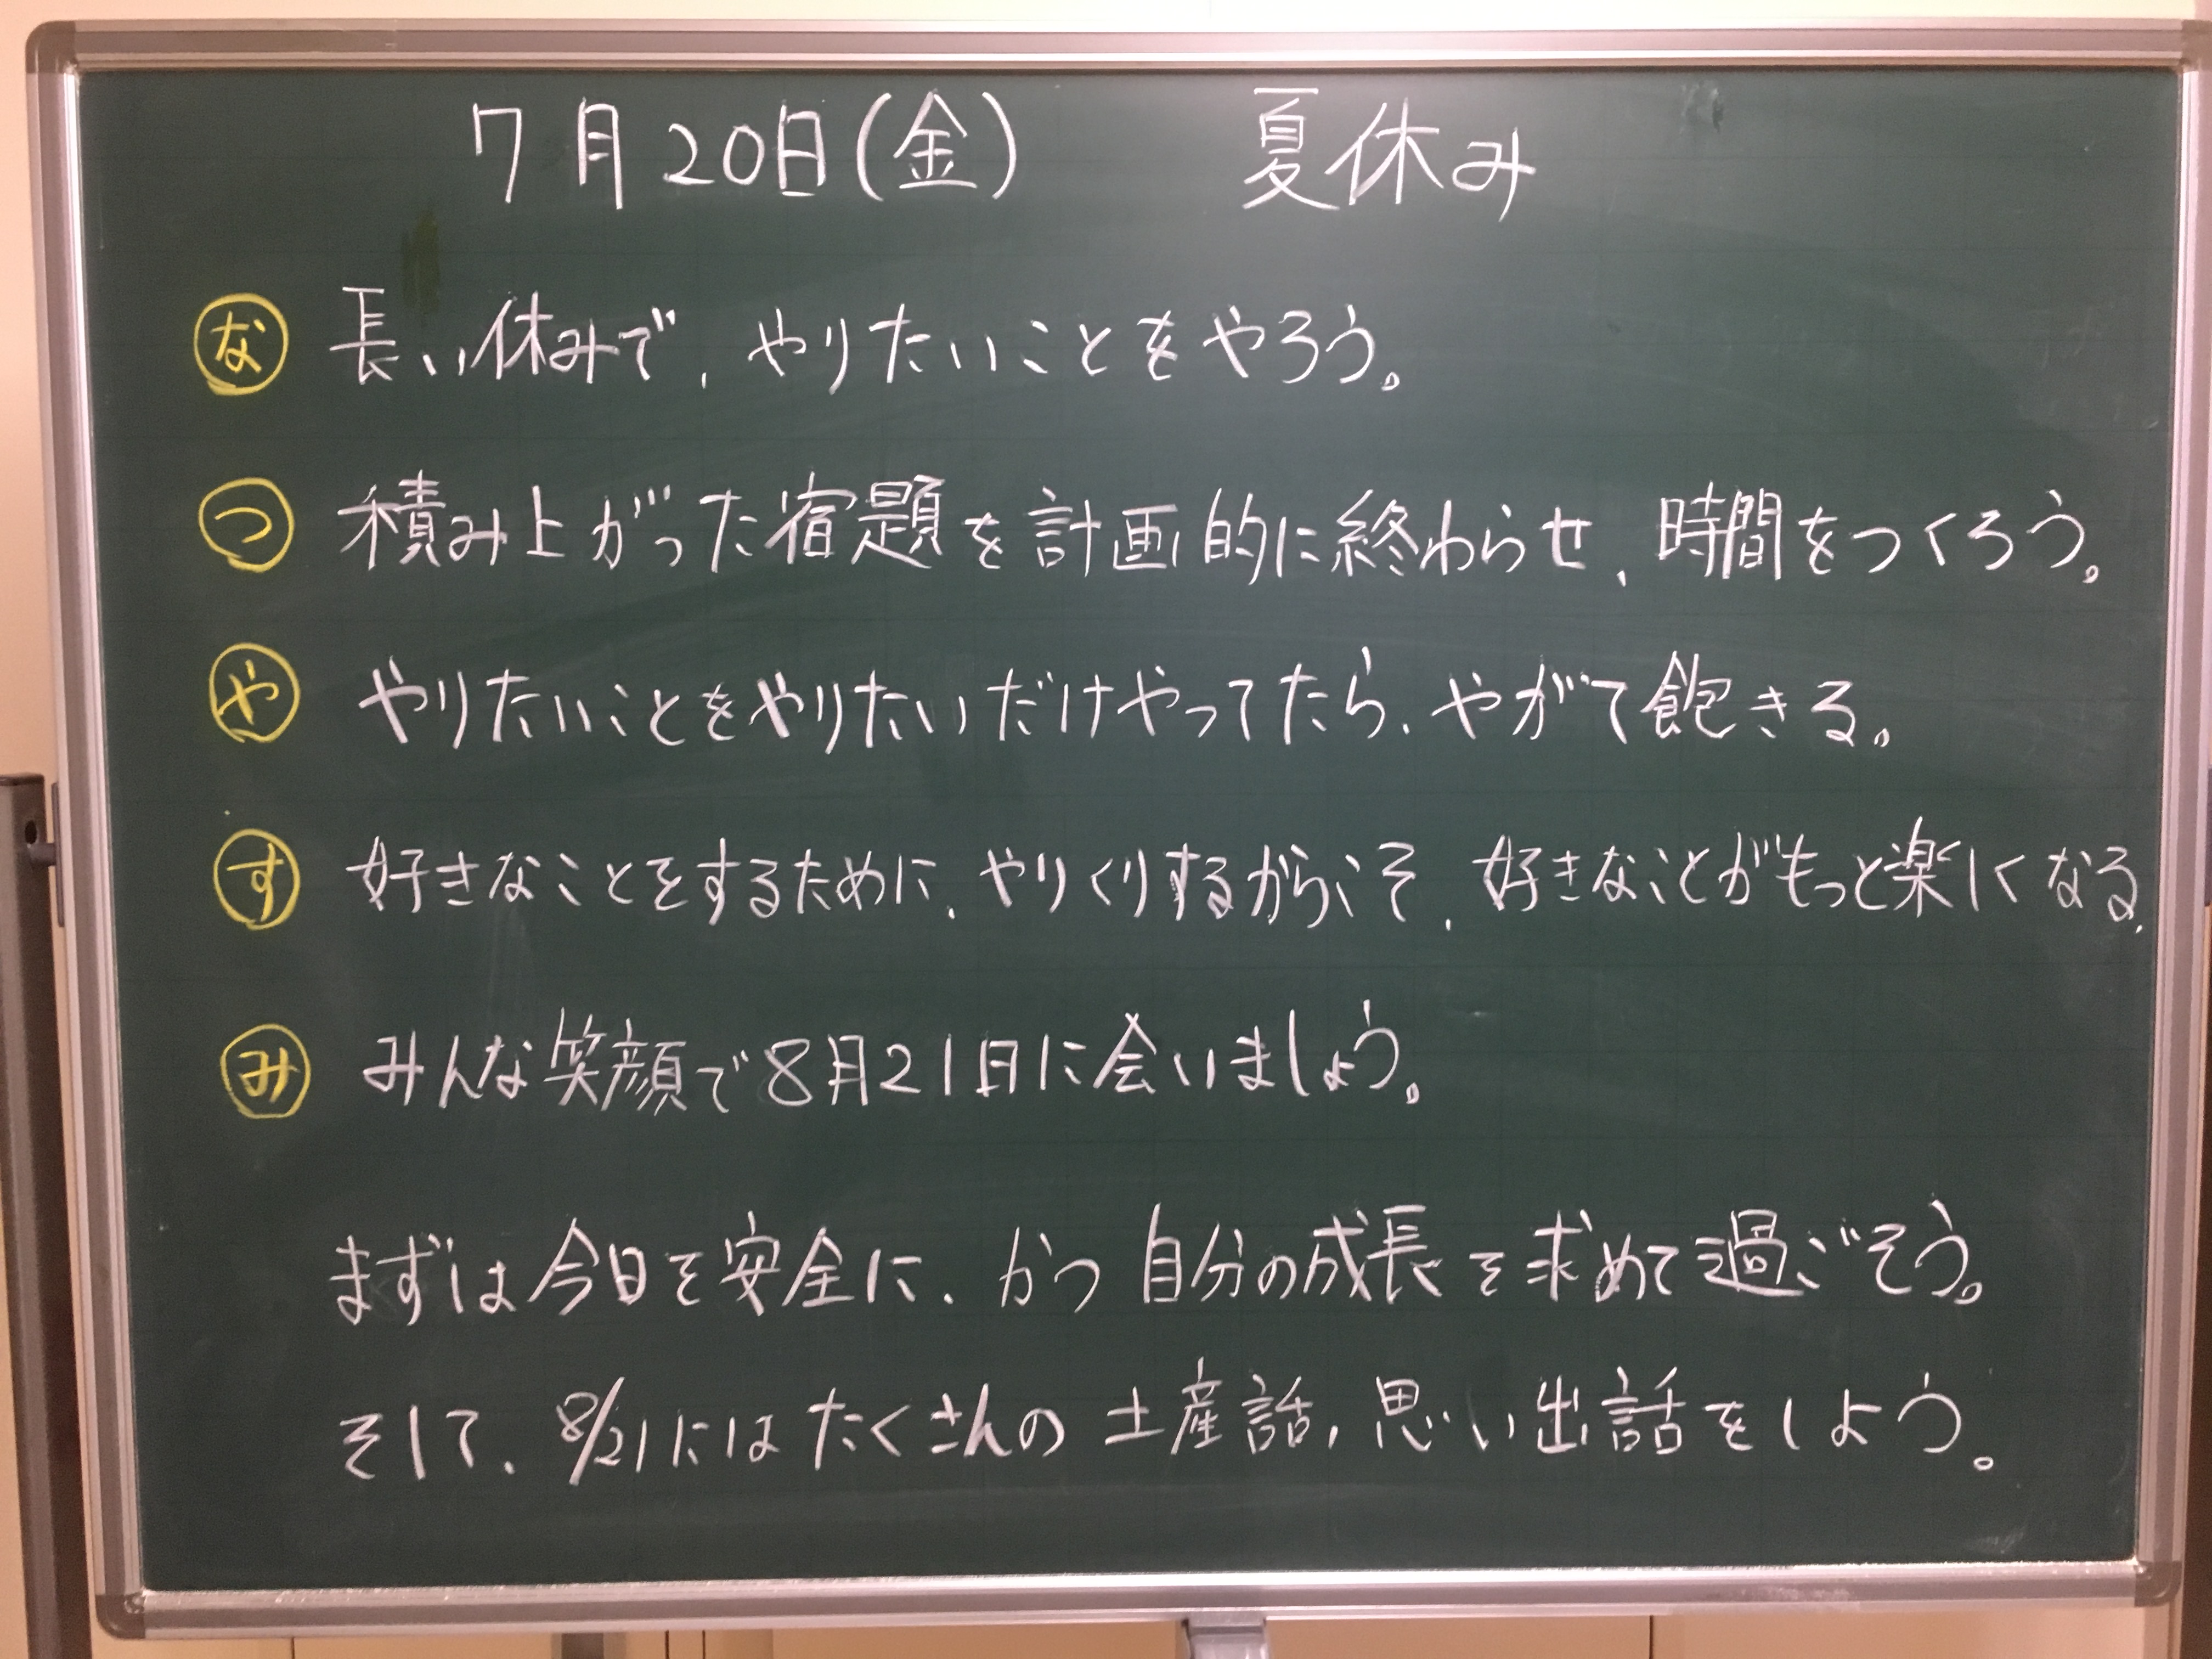 7月20日(金) 夏休み
な 長い休みで、やりたいことをやろう。
つ 積み上がった宿題を計画的に終わらせ、時間をつくろう。
や やりたいことをやりたいだけやってたら、やがて飽きる。
す 好きなことをするために、やりくりするからこそ、好きなことがもっと楽しくなる。
み みんな笑顔で8月21日に会いましょう。
まずは今日を安全に、かつ自分の成長を求めて過ごそう。
そして、8/21にはたくさんの土産話、思い出話をしよう。